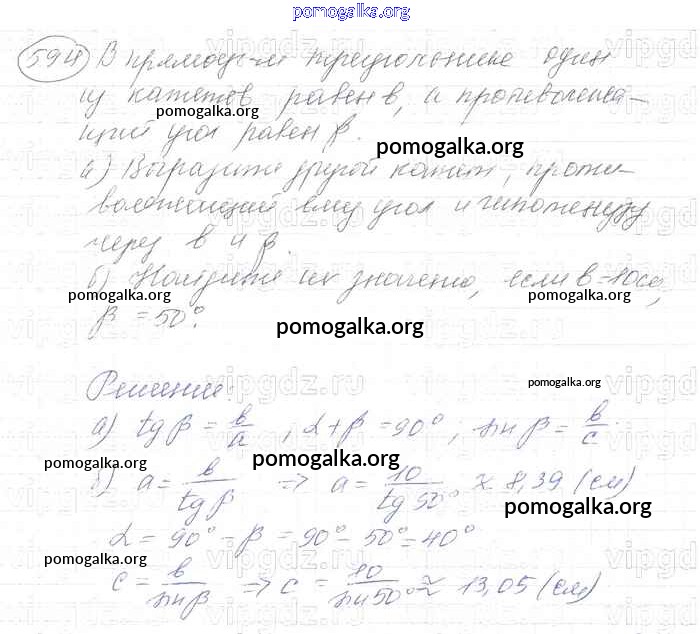 pomogalka.org
594 В прямоуг-м треугольнике один
из катетов равен b, а противолежа-
pomogalka.org
щий угол равен β.
pomogalka.org
а) Выразите другой катет, проти-
волежащий ему угол и гипотенузу
через b и β.
б) Найдите их значения, если b = 10см,
pomogalka.org pomogalka.org
β = 50°.
pomogalka.org
Решение:
pomogalka.org
а) tg β = b/a, α + β = 90°; sin β = b/c.
pomogalka.org pomogalka.org
б) a = b/tg β => a = 10/tg 50° ≈ 8,39 (см)
pomogalka.org
α = 90° - β = 90° - 50° = 40°
pomogalka.org pomogalka.org
c = b/sin β => c = 10/sin 50° ≈ 13,05 (см)